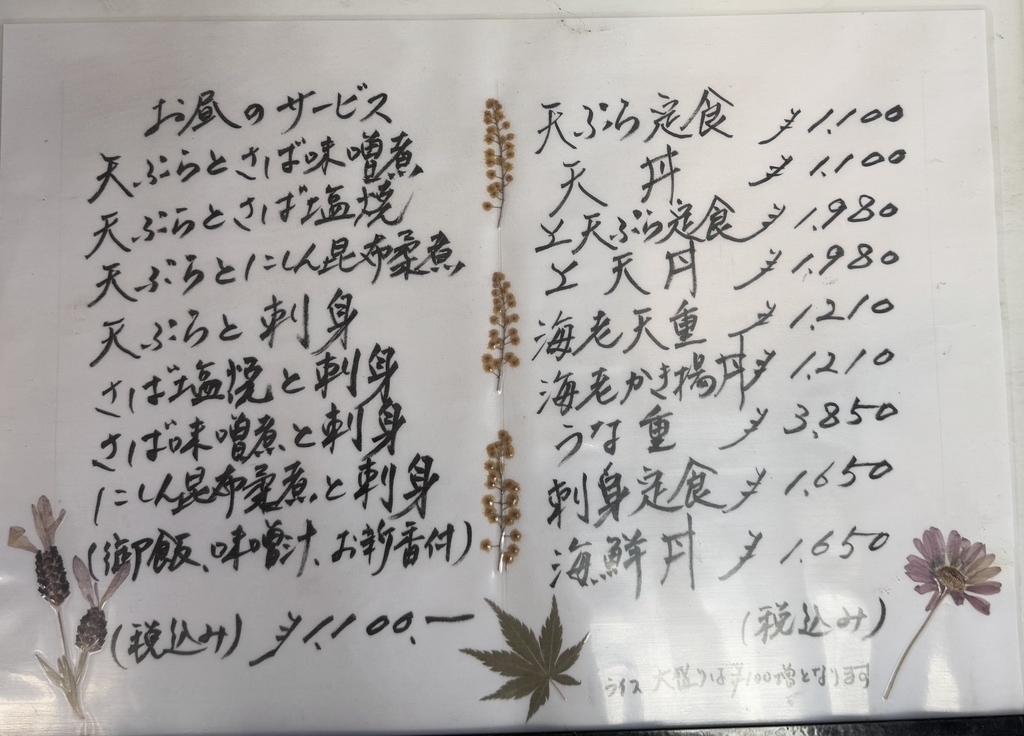 お昼のサービス
天ぷらとさば味噌煮
天ぷらとさば塩焼
天ぷらとにしん昆布柔煮
天ぷらと刺身
さば塩焼と刺身
さば味噌煮と刺身
にしん昆布柔煮と刺身
(御飯、味噌汁、お新香付)
(税込み) ¥1,100.ー
天ぷら定食 ¥1,100
天丼 ¥1,100
上天ぷら定食 ¥1,980
上天丼 ¥1,980
海老天重 ¥1,210
海老かき揚丼 ¥1,210
うな重 ¥3,850
刺身定食 ¥1,650
海鮮丼 ¥1,650
(税込み)
ライス 大盛りは¥100増となります